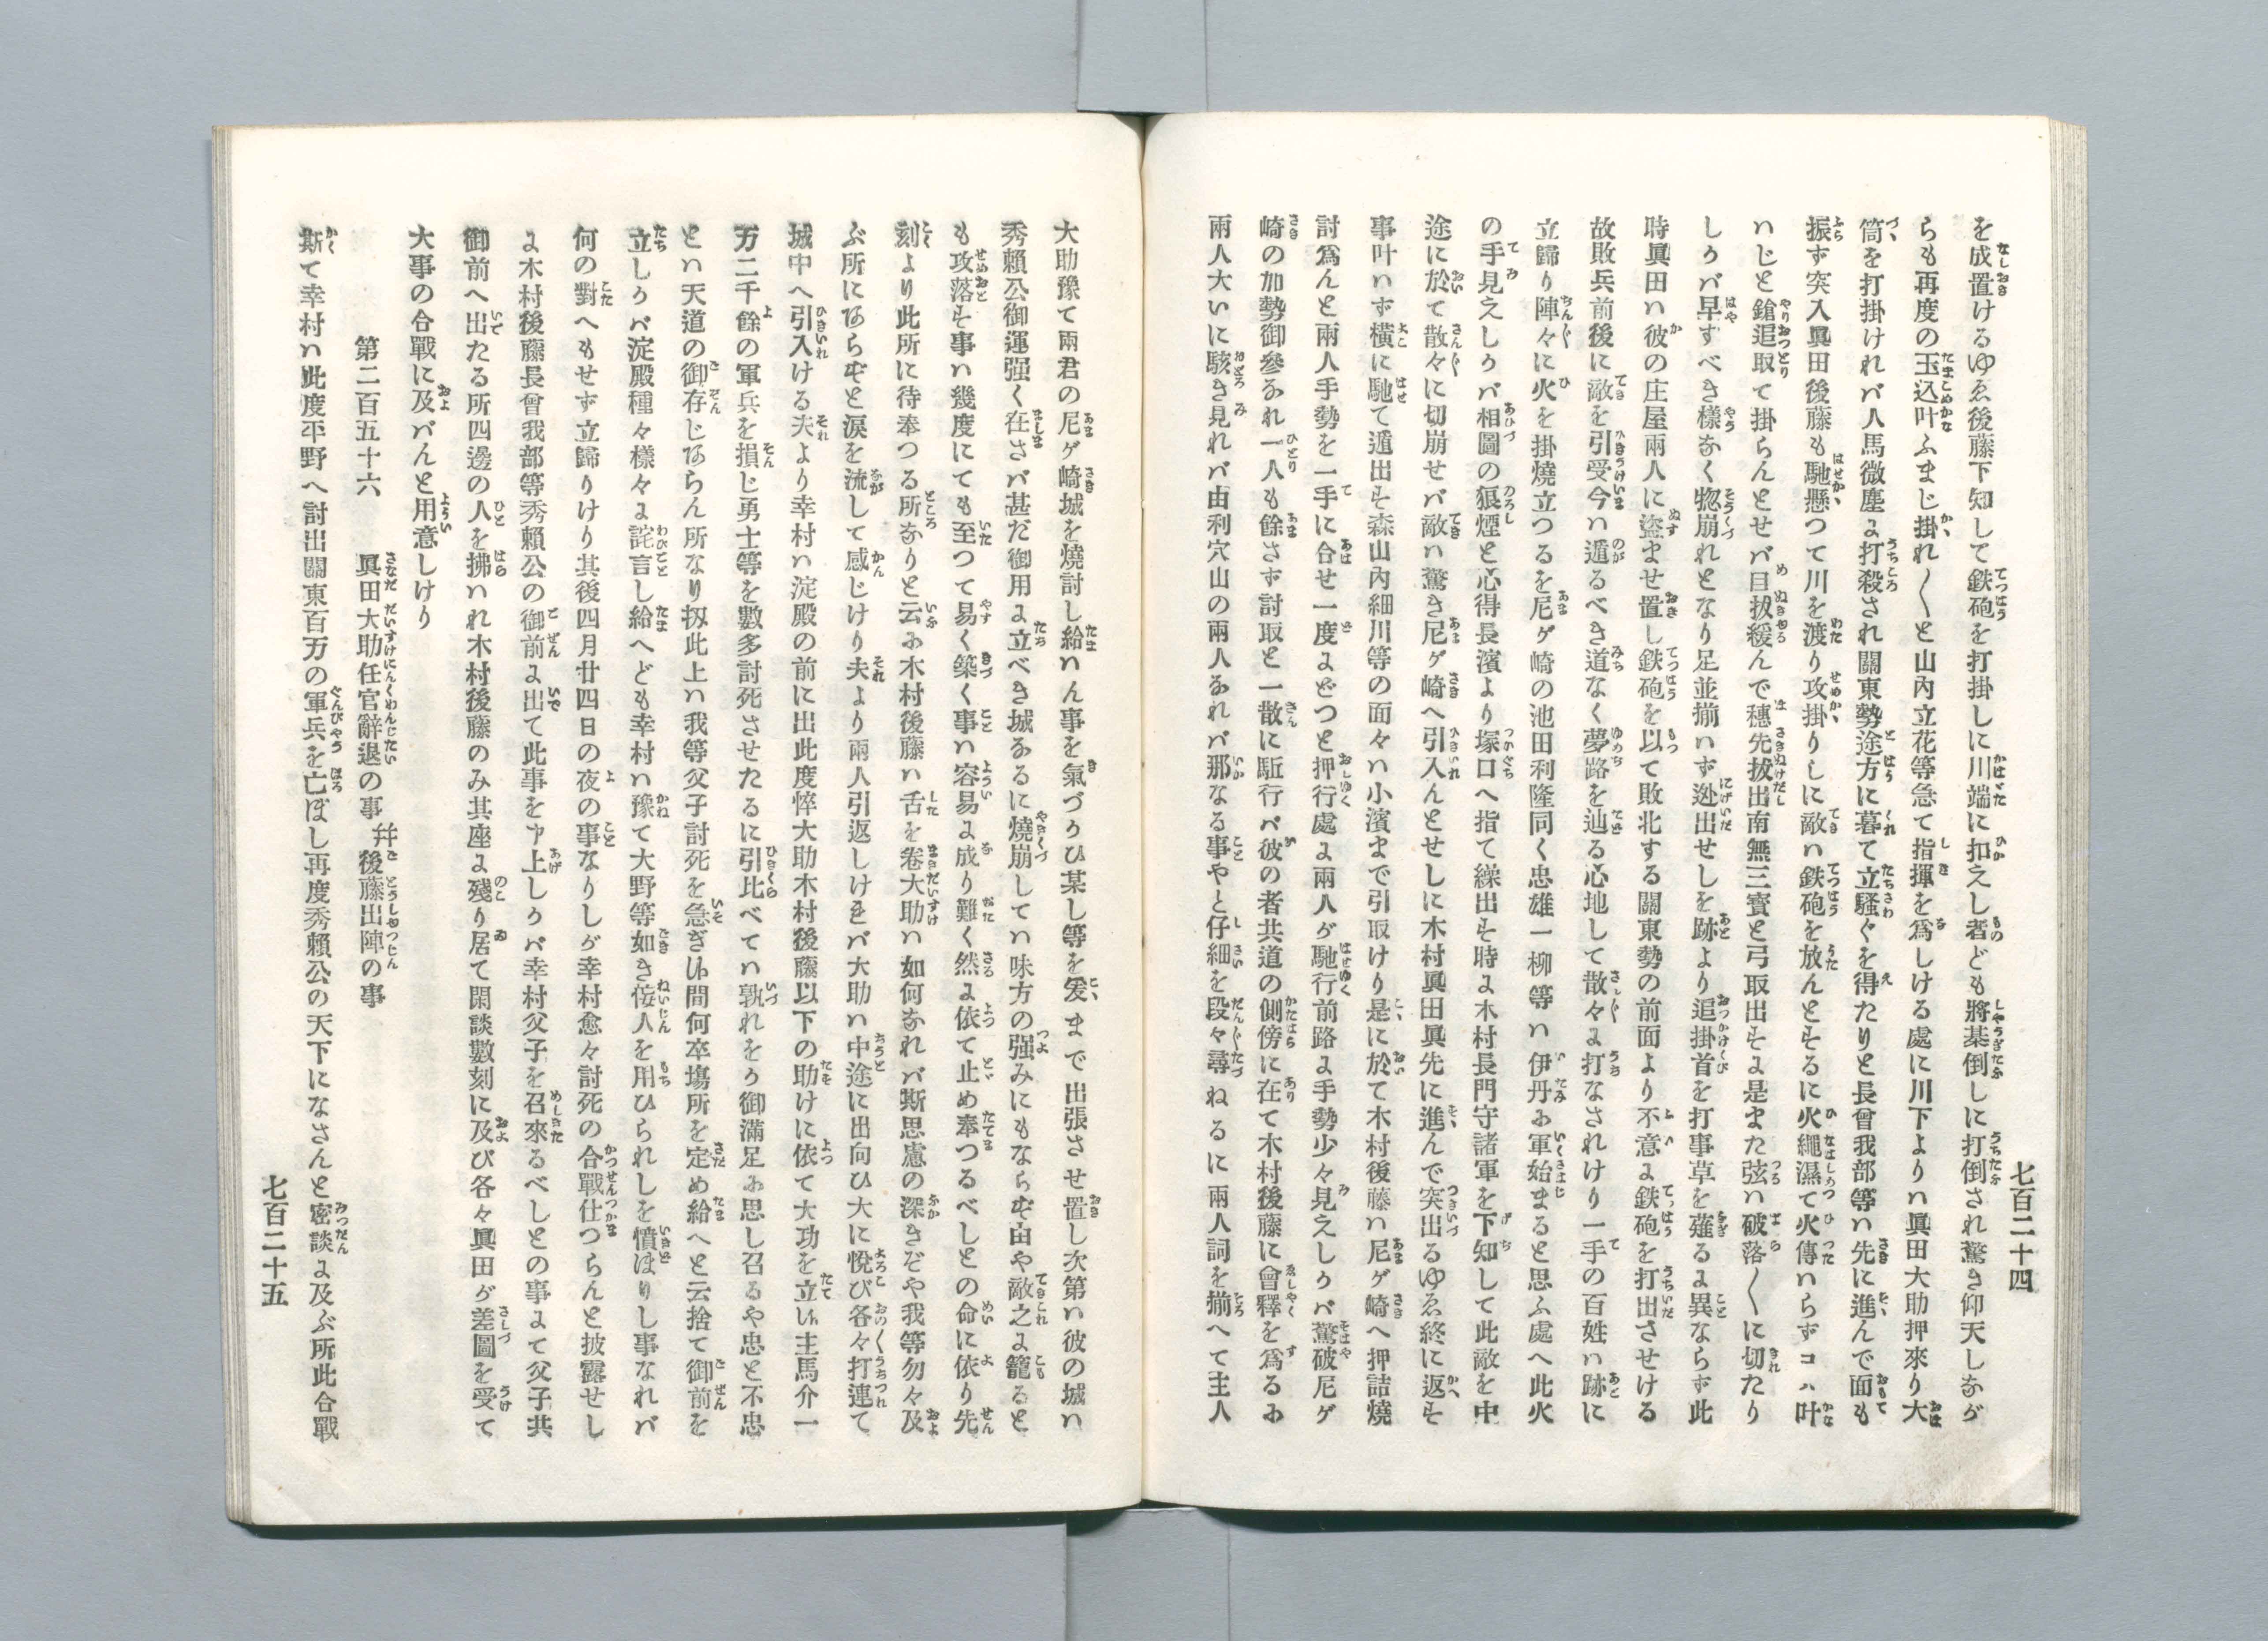 七百二十四
を成置けるゆゑ後藤下知して鉄砲を打掛しに川端に扣えし者ども將棊倒しに打倒され驚き仰天しなが
らも再度の玉込叶ふまじ掛れ〱と山內立花等急て指揮を爲しける處に川下よりハ眞田大助押來り大
筒を打掛けれバ人馬微塵に打殺され關東勢途方に暮て立騷ぐを得たりと長曾我部等ハ先に進んで面も
振ず突入眞田後藤も馳懸つて川を渡り攻掛りしに敵ハ鉄砲を放んとするに火繩濕て火傳ハらずコハ叶
ハじと鎗追取て掛らんとせバ目拔緩んで穗先拔出南無三寳と弓取出すに是また弦ハ破落〱に切たり
しかバ早すべき樣なく惣崩れとなり足並揃ハず迯出せしを跡より追掛首を打事草を薙るに異ならず此
時眞田ハ彼の庄屋兩人に盜ませ置し鉄砲を以て敗北する關東勢の前面より不意に鉄砲を打出させける
故敗兵前後に敵を引受今ハ遁るべき道なく夢路を辿る心地して散々に打なされけり一手の百姓ハ跡に
立歸り陣々に火を掛燒立つるを尼ケ崎の池田利隆同く忠雄一柳等ハ伊丹に軍始まると思ふ處へ此火
の手見えしかバ相圖の狼煙と心得長濱より塚口へ指て繰出す時に木村長門守諸軍を下知して此敵を中
途に於て散々に切崩せバ敵ハ驚き尼ケ崎へ引入んとせしに木村眞田眞先に進んで突出るゆゑ終に返す
事叶ハず橫に馳て遁出す森山內細川等の面々ハ小濱まで引取けり是に於て木村後藤ハ尼ケ崎へ押詰燒
討爲んと兩人手勢を一手に合せ一度にどつと押行處に兩人が馳行前路に手勢少々見えしかバ驚破尼ケ
崎の加勢御參なれ一人も餘さず討取と一散に駈行バ彼の者共道の側傍に在て木村後藤に會釋を爲るに
兩人大いに駭き見れバ由利穴山の兩人なれバ那なる事やと仔細を段々尋ねるに兩人詞を揃へて主人
大助豫て兩君の尼ケ崎城を燒討し給ハん事を氣づかひ某し等を爰まで出張させ置し次第ハ彼の城ハ
秀賴公御運强く在さバ甚だ御用に立べき城なるに燒崩してハ味方の强みにもならず由や敵之に籠ると
も攻落す事ハ幾度にても至つて易く築く事ハ容易に成り難く然るに依て止め奉つるべしとの命に依り先
刻より此所に待奉つる所なりと云に木村後藤ハ舌を卷大助ハ如何なれバ斯思慮の深きぞや我等勿々及
ぶ所にあらずと淚を流して感じけり夫より兩人引返しけれバ大助ハ中途に出向ひ大に悅び各々打連て
城中へ引入ける夫より幸村ハ淀殿の前に出此度悴大助木村後藤以下の助けに依て大功を立しハ主馬介一
万二千餘の軍兵を損じ勇士等を數多討死させたるに引比べてハ孰れをか御滿足に思し召るや忠と不忠
とハ天道の御存じあらん所なり扨此上ハ我等父子討死を急ぎし間何卒塲所を定め給へと云捨て御前を
立しかバ淀殿種々樣々に詫言し給へども幸村ハ豫て大野等如き佞人を用ひられしを憤ほりし事なれバ
何の對へもせず立歸りけり其後四月廿四日の夜の事なりしが幸村愈々討死の合戰仕つらんと披露せし
に木村後藤長曾我部等秀賴公の御前に出て此事を申上しかバ幸村父子を召來るべしとの事にて父子共
御前へ出たる所四邊の人を拂ハれ木村後藤のみ其座に殘り居て閑談數刻に及び各々眞田が差圖を受て
大事の合戰に及バんと用意しけり
第二百五十六　眞田大助任官辭退の事幷後藤出陣の事
斯て幸村ハ此度平野へ討出關東百万の軍兵を亡ぼし再度秀賴公の天下になさんと密談に及ぶ所此合戰
七百二十五